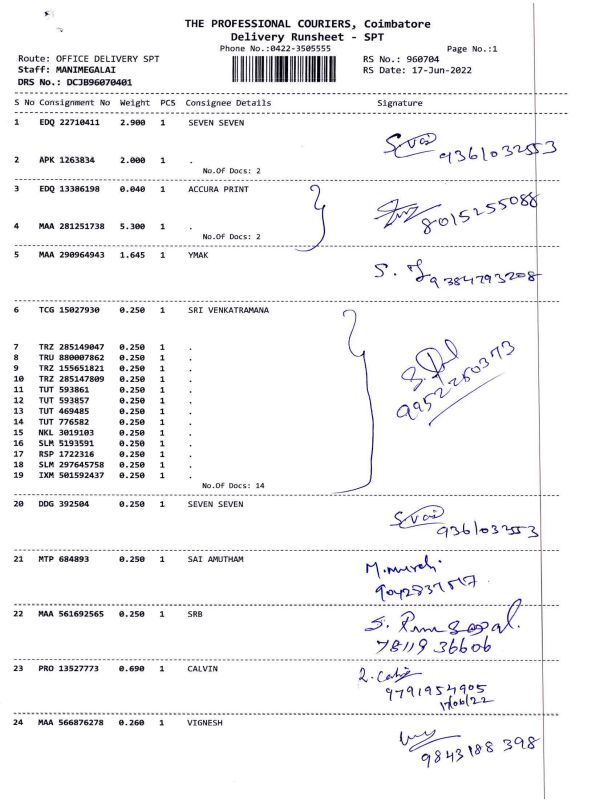 THE PROFESSIONAL COURIERS, Coimbatore
Delivery Runsheet - SPT
Phone No.:0422-3505555 Page No.:1
Route: OFFICE DELIVERY SPT RS No.: 960704
Staff: MANIMEGALAI RS Date: 17-Jun-2022
DRS No.: DCJB96070401
S No Consignment No Weight PCS Consignee Details Signature
1 EDQ 22710411 2.900 1 SEVEN SEVEN
9361032553
2 APK 1263834 2.000 1 .
No.Of Docs: 2
3 EDQ 13386198 0.040 1 ACCURA PRINT
8015255088
4 MAA 281251738 5.300 1 .
No.Of Docs: 2
5 MAA 290964943 1.645 1 YMAK
9384793208
6 TCG 15027930 0.250 1 SRI VENKATRAMANA
7 TRZ 285149047 0.250 1 .
8 TRU 880007862 0.250 1 .
9 TRZ 155651821 0.250 1 .
10 TRZ 285147809 0.250 1 .
11 TUT 593861 0.250 1 .
12 TUT 593857 0.250 1 .
13 TUT 469485 0.250 1 .
14 TUT 776582 0.250 1 .
15 NKL 3019103 0.250 1 .
16 SLM 5193591 0.250 1 .
17 RSP 1722316 0.250 1 .
18 SLM 297645758 0.250 1 .
19 IXM 501592437 0.250 1 .
No.Of Docs: 14
9952250373
20 DDG 392504 0.250 1 SEVEN SEVEN
9361032553
21 MTP 684893 0.250 1 SAI AMUTHAM
22 MAA 561692565 0.250 1 SRB
78119 36606
23 PRO 13527773 0.690 1 CALVIN
9791954905
17/06/22
24 MAA 566876278 0.260 1 VIGNESH
9843188 398